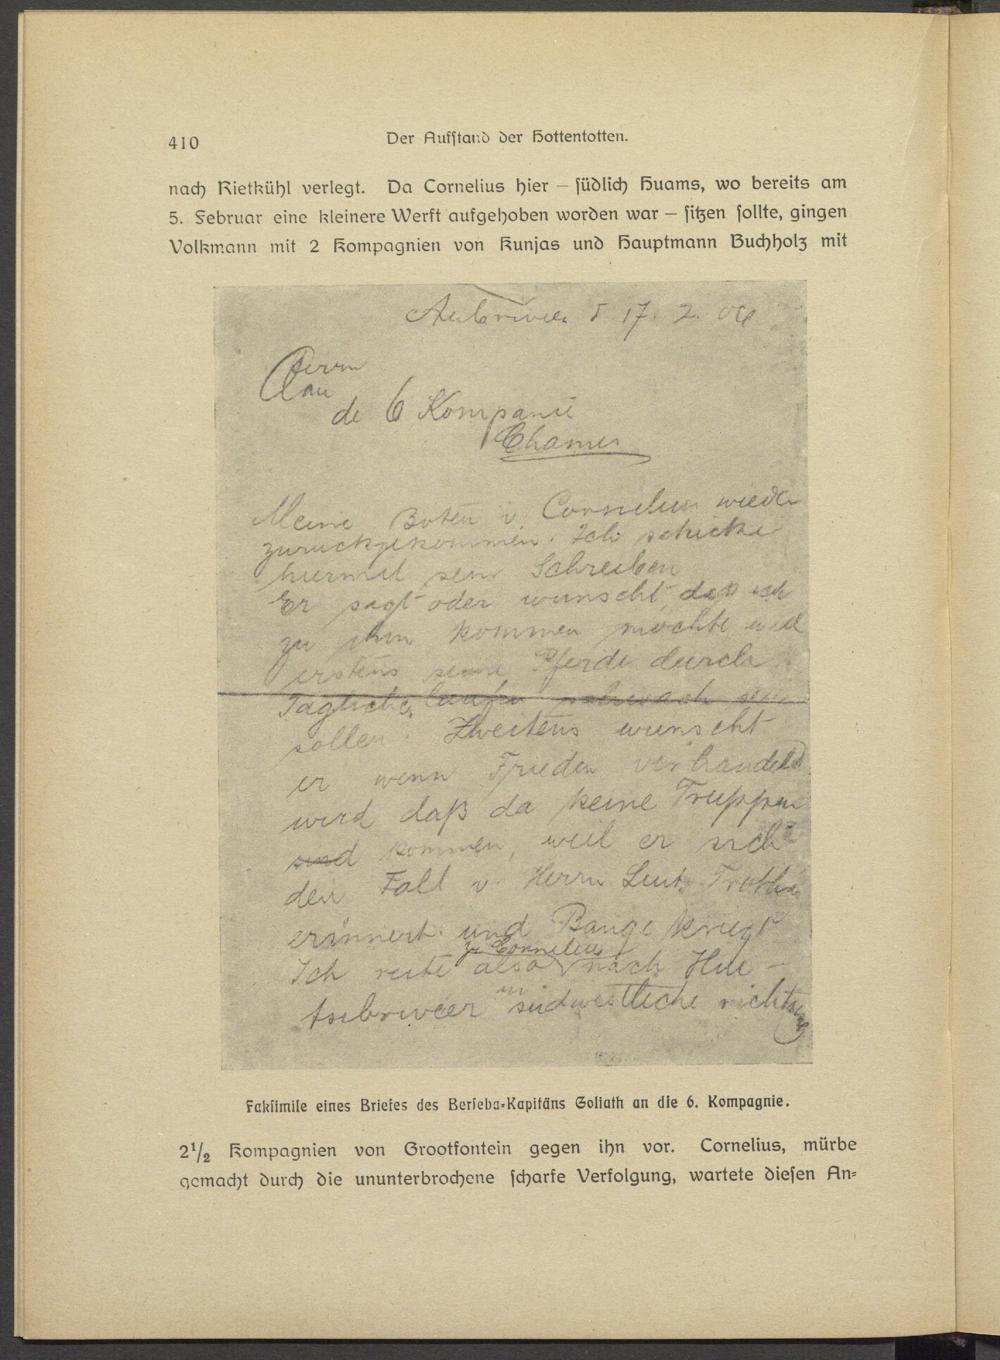 410
Der Aufstand der Hottentotten.
nach Rietkühl verlegt. Da Cornelius hier – südlich Huams, wo bereits am
5. Februar eine kleinere Werft aufgehoben worden war – sitzen sollte, gingen
Volkmann mit 2 Kompagnien von Kunjas und Hauptmann Buchholz mit
17. 2. 06
Herrn
de 6 Kompanie
Chamis
Meine Boten v. Cornelius wieder
zurückgekommen. Ich schicke
hiermit sein Schreiben
Er sagt oder wünscht, daß ich
zu ihm kommen möchte weil
erstens seine Pferde durch
Tägliche laufen schwach sein
sollen. Zweitens wünscht
er wenn Frieden verhandelt
wird daß da keine Truppen
sind kommen, weil er sich
den Fall v. Herrn Leut. Trotha
erinnert und Bange kriegt
zu Cornelius
Ich reite also nach
in südwestliche richtung
Faksimile eines Briefes des Berseba-Kapitäns Goliath an die 6. Kompagnie.
2½ Kompagnien von Grootfontein gegen ihn vor. Cornelius, mürbe
gemacht durch die ununterbrochene scharfe Verfolgung, wartete diesen An-